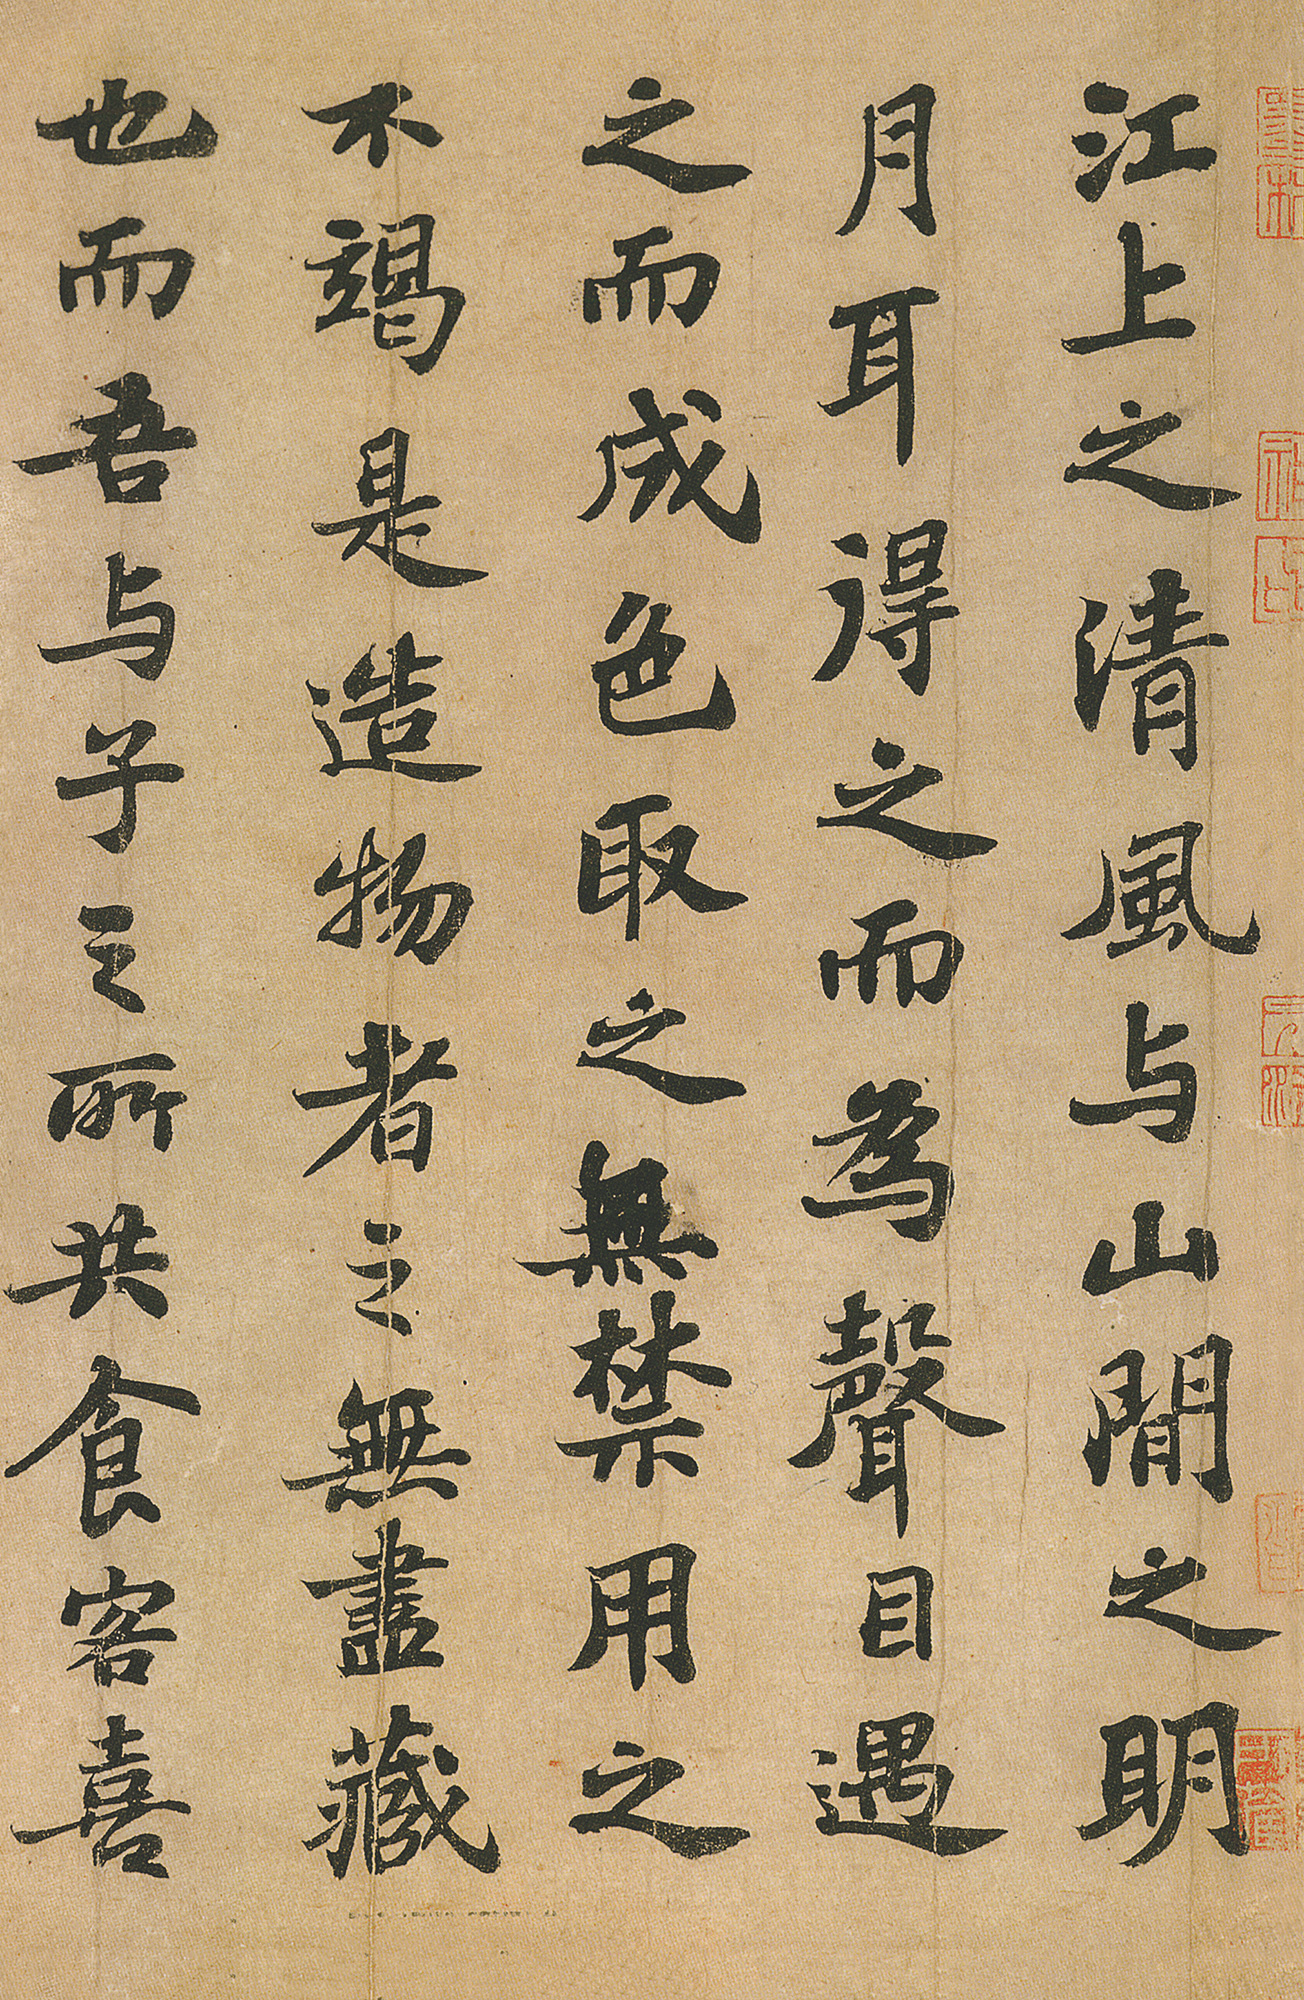 江上之清風与山間之明
月耳得之而為聲目遇
之而成色取之無禁用之
不竭是造物者之無盡藏
也而吾与子之所共食客喜